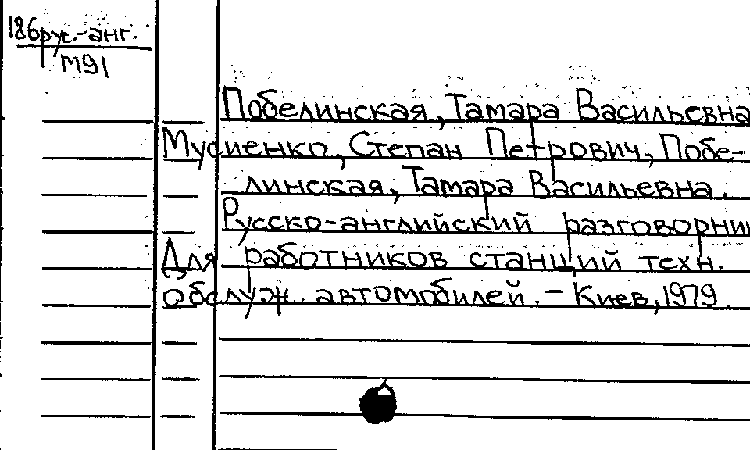 186рус.-анг.
М91
Побелинская, Тамара Васильевна
Мусиенко, Степан Петрович, Побе-
линская, Тамара Васильевна.
Русско-английский разговорник
Для работников станций техн.
обслуж. автомобилей. - Киев, 1979.